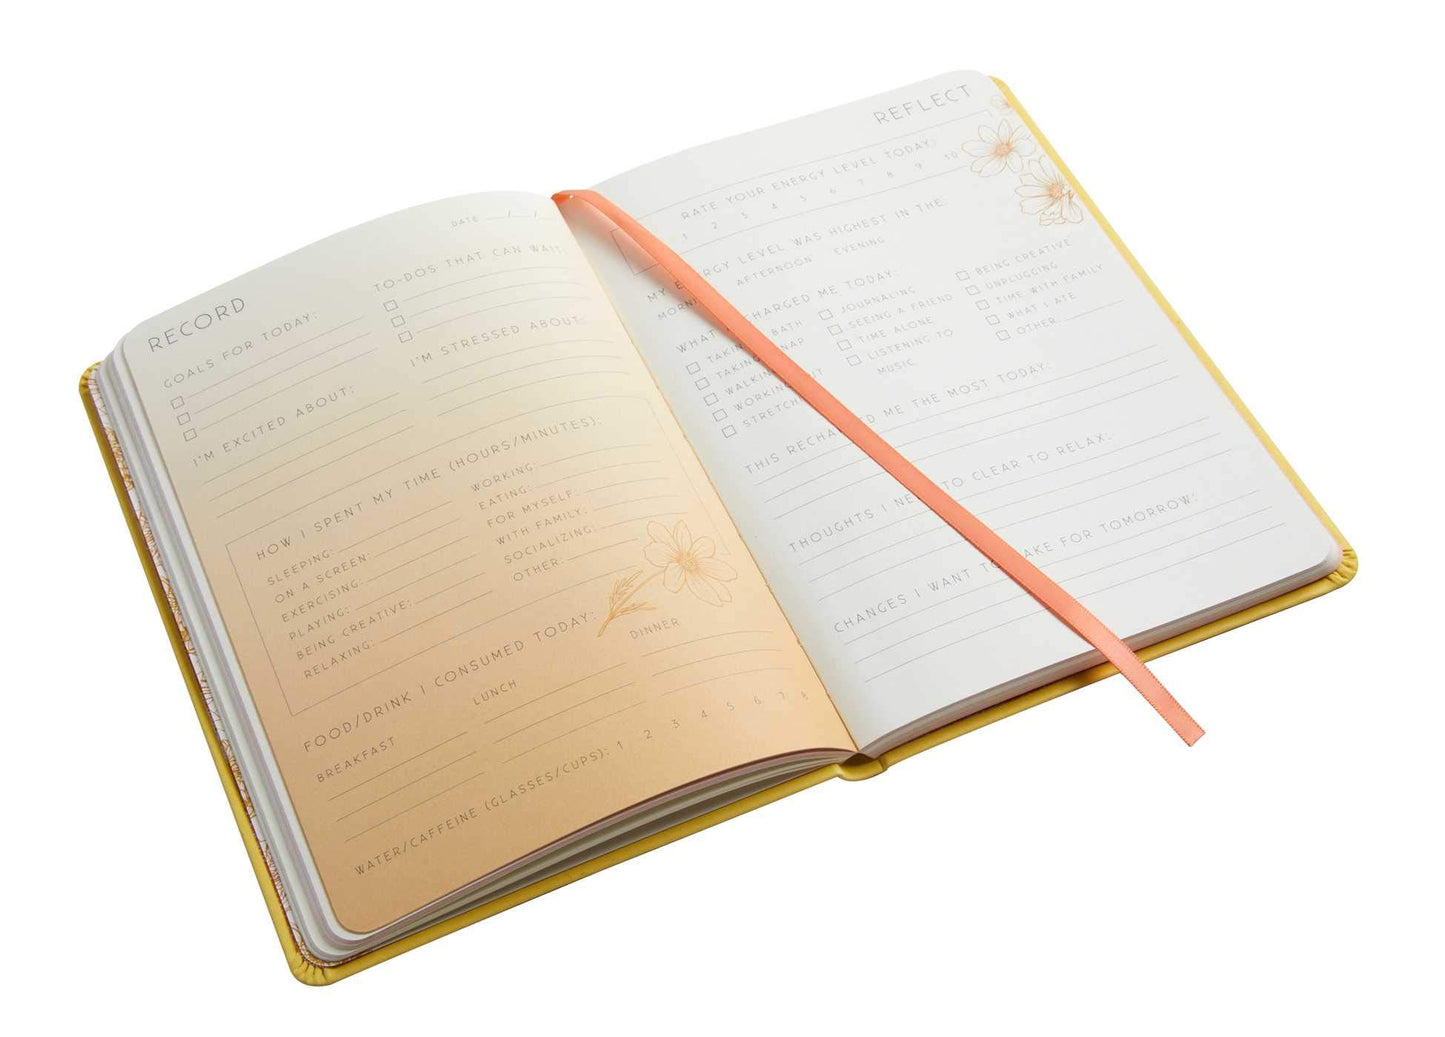 RECORD
DATE / /
GOALS FOR TODAY:
TO-DOS THAT CAN WAIT:
I'M EXCITED ABOUT:
I'M STRESSED ABOUT:
HOW I SPENT MY TIME (HOURS/MINUTES):
SLEEPING:
ON A SCREEN:
EXERCISING:
PLAYING:
BEING CREATIVE:
RELAXING:
WORKING:
EATING:
FOR MYSELF:
WITH FAMILY:
SOCIALIZING:
OTHER:
FOOD/DRINK I CONSUMED TODAY:
BREAKFAST
LUNCH
DINNER
WATER/CAFFEINE (GLASSES/CUPS): 1 2 3 4 5 6 7 8
REFLECT
RATE YOUR ENERGY LEVEL TODAY:
1 2 3 4 5 6 7 8 9 10
MY ENERGY LEVEL WAS HIGHEST IN THE:
MORNI AFTERNOON EVENING
WHAT CHARGED ME TODAY:
TAKING BATH
TAKING NAP
WALKIN
WORKING OUT
STRETCH
JOURNALING
SEEING A FRIEND
TIME ALONE
LISTENING TO
MUSIC
BEING CREATIVE
UNPLUGGING
TIME WITH FAMILY
WHAT I ATE
OTHER
THIS RECHARGED ME THE MOST TODAY:
THOUGHTS I NEED TO CLEAR TO RELAX:
CHANGES I WANT TO MAKE FOR TOMORROW: